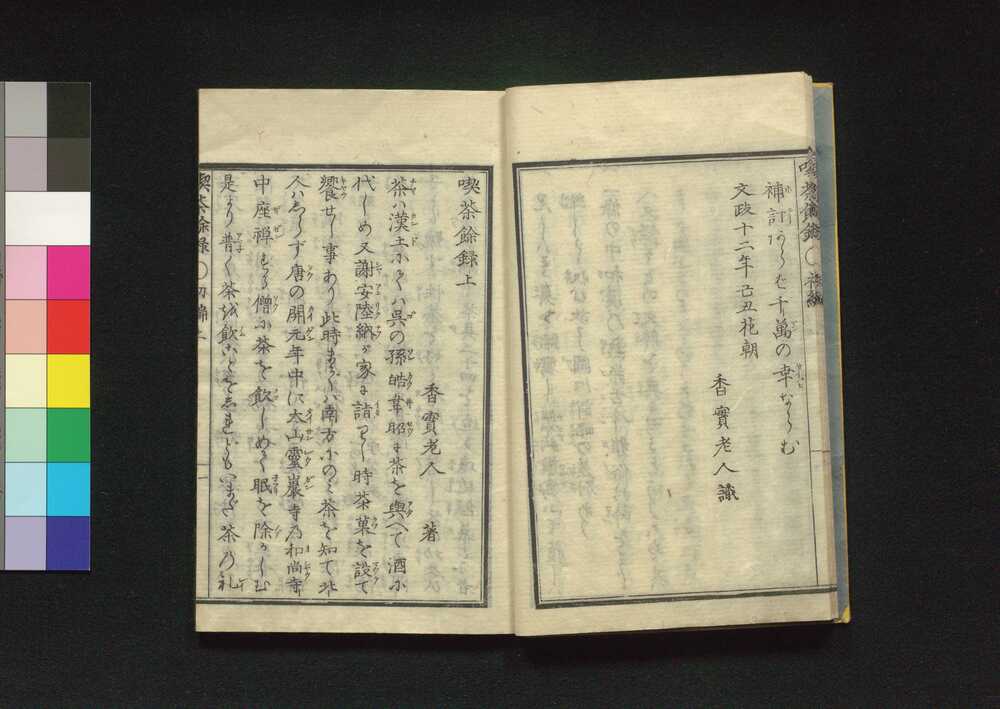 喫茶餘錄
補訂あらんは千萬の幸ならむ
文政十二年己丑花朝
香實老人識
喫茶餘録上
香實老人 著
茶ハ漢土にてハ呉の孫皓韋昭に茶を與へて酒に
代しめ又謝安陸納が家に詣りし時茶菓を設て
饗せし事あり此時までハ南方にのミ茶を知て北
人ハしらず唐の開元年中に太山靈巖寺乃和尚寺
中座禪する僧に茶を飲しめて眠を除かしむ
是より普く茶を飲ことをしれどもいまだ茶乃礼
喫茶餘録 〇初編上